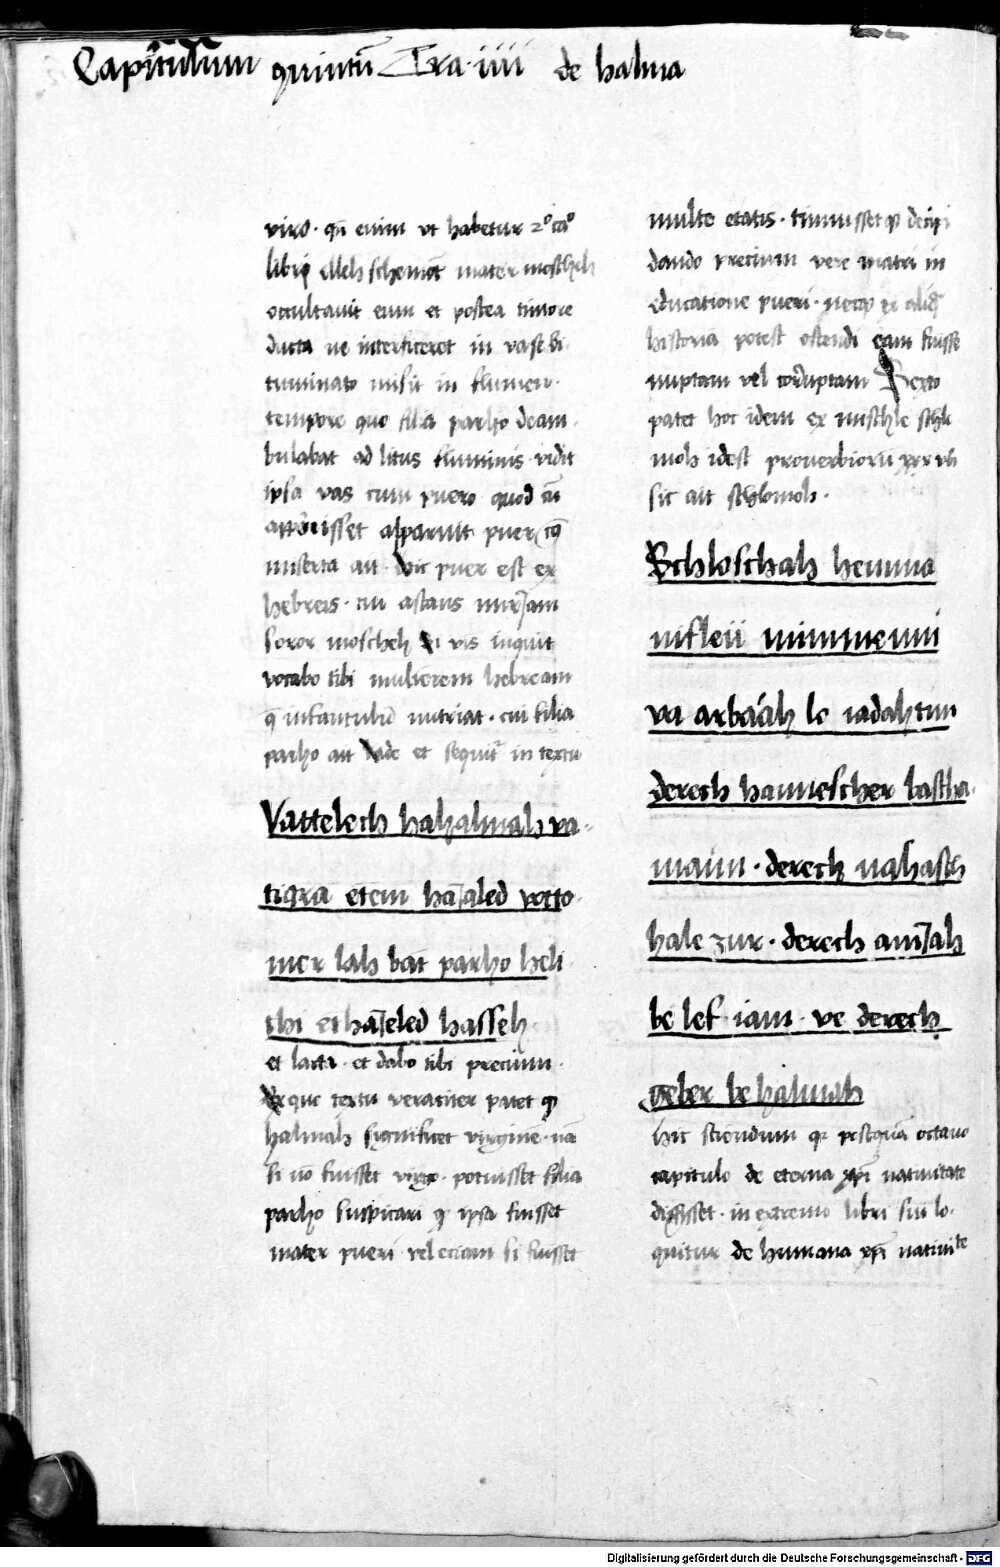 Capitulum quintū Tra. iiii de halma
viro. qm̄ enim ut habetur 2º caº
libri elleh schemot mater moscheh
occultauit eum et postea timore
ducta ne interficeret in vase bi
tuminato misit in flumen.
tempore quo filia parho deam
bulabat ad litus fluminis. vidit
ipsa vas cum puero quod cū
apparuit puer
miserta ait. hic puer est ex
hebreis. cui astans mirjam
soror moscheh si vis inquit
vocabo tibi mulierem hebream
q̄ infantulū nutriat. cui filia
parho ait vade et sequit̄ in textu
Vattelech hahalmah va-
tiqra etem hajaled votto
mer lah bat parho heli
chi et hajeled hasseh.
et lacta. et dabo tibi precium.
Ex quo textu veraciter patet qp
halmah significet virginē. nā
si nō fuisset virgo. potuisset filia
parho suspicari qp ipsa fuisset
mater pueri vel etiam si fuisset
multe etatis. timuisset qp decipi
dando precium vere matri in
educatione pueri. necqp ex aliq̄
historia potest ostendi eam fuisse
nuptam vel corruptam Sexto
patet hoc idem ex mischle schlo
moh idest prouerbiorū xxx vbi
sic ait schlomoh.
Schloschah hemma
nifleii mimmenni
va arbaah lo iadahtim
derech hannescher bascha-
maim. derech nahasch
hale zur. derech anijah
be lef. iam. ve derech
geber be halmah
Hic sciendum qp postquā octauo
capitulo de eterna xpī natiuitate
dixisset. in extremo libri sui lo-
quitur de humana xpī natiuite
Digitalisierung gefördert durch die Deutsche Forschungsgemeinschaft - DFG